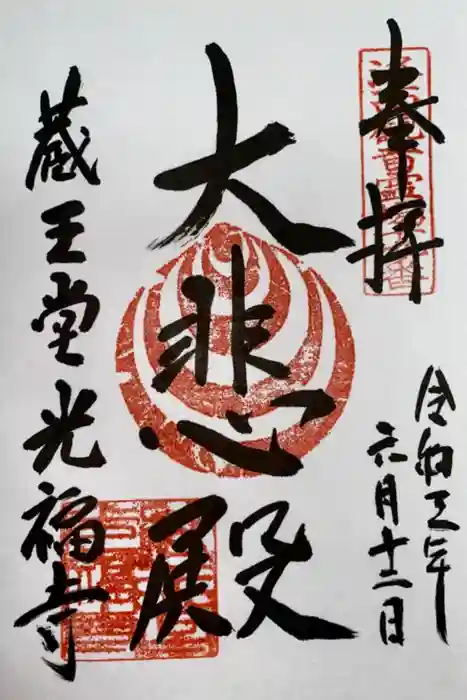 奉拝
令和三年
六月十二日
大悲殿
蔵王堂光福寺